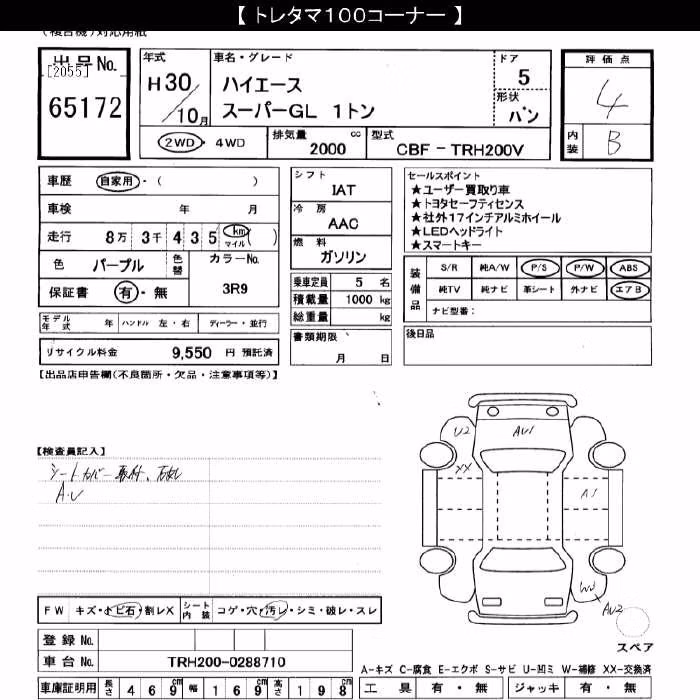 【 トレタマ100コーナー 】
出品No.
[2055]
65172
年式
H30/10月
車名・グレード
ハイエース
スーパーGL 1トン
ドア
5
形状
バン
評価点
4
内装
B
2WD・4WD
排気量 cc
2000
型式
CBF-TRH200V
車歴 自家用・( )
車検 年 月
走行 8万 3千 4 3 5 km マイル ( )
色 パープル
色替
カラーNo.
3R9
保証書 有・無
モデル年式 年
ハンドル 左・右
ディーラー・並行
リサイクル料金 9,550 円 預託済
シフト
IAT
冷房
AAC
燃料
ガソリン
乗車定員 5 名
積載量 1000 kg
総重量 kg
書類期限
月 日
セールスポイント
★ユーザー買取り車
★トヨタセーフティセンス
★社外17インチアルミホイール
★LEDヘッドライト
★スマートキー
装備品
S/R 純A/W P/S P/W ABS
純TV 純ナビ 革シート 外ナビ エアB
ナビ型番:
後日品
【出品店申告欄(不良箇所・欠品・注意事項等)】
【検査員記入】
シートカバー取付、
A.U
U2
AU1
XX
A1
AU2
スペア
FW キズ・トビ石・割レX
シート内装 コゲ・穴・汚レ・シミ・破レ・スレ
登録No.
車台No. TRH200-0288710
車庫証明用 長さ 469cm 幅 169cm 高さ 198cm
A-キズ C-腐食 E-エクボ S-サビ U-凹ミ W-補修 XX-交換済
工具 有・無 ジャッキ 有・無